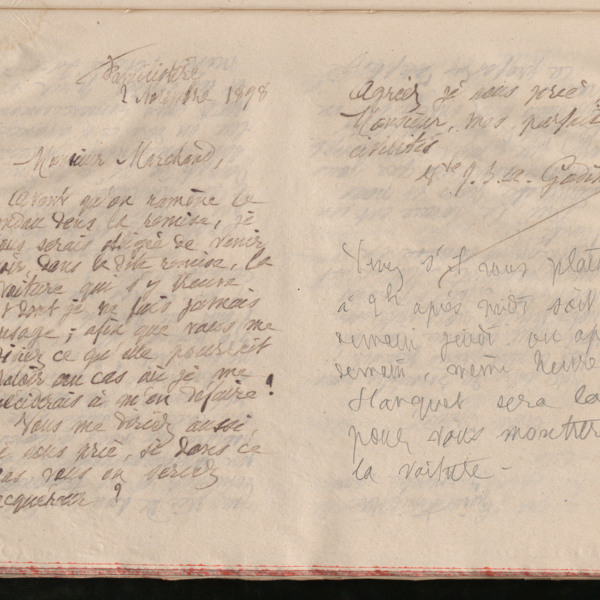 Familistère
2 Novembre 1898
Monsieur Marchand,
Avant qu'on ramène le
landau dans la remise, je
vous serais obligée de venir
voir, dans la dite remise, la
voiture qui s'y trouve
et dont je ne fais jamais
usage ; afin que vous me
disiez ce qu'elle pourrait
valoir au cas où je me
déciderais à m'en défaire !
Vous me direz aussi,
je vous prie, si dans ce
cas vous en seriez
acquéreur ?
Agréez, je vous prie,
Monsieur, mes parfaites
civilités
Vve J. Bte A. Godin
Venez s'il vous plait
à 9h après midi soit
demain jeudi ou après
demain, même heure
Hanquet sera là
pour vous montrer
la voiture -